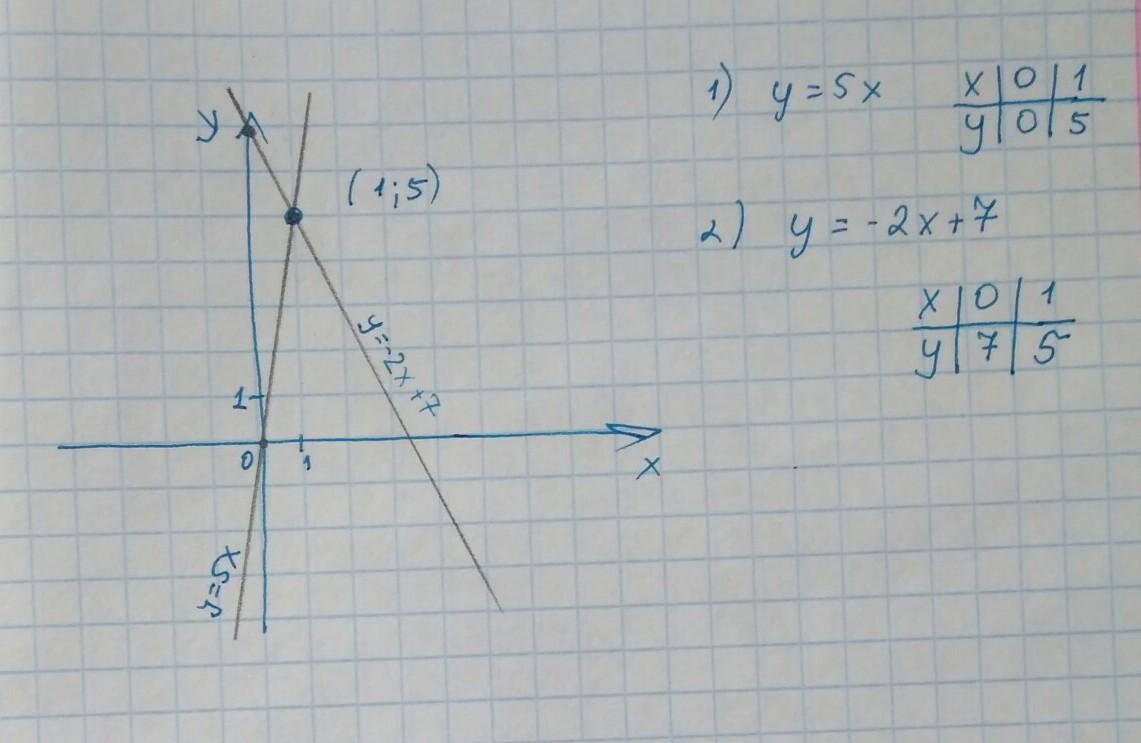 1) y = 5x
x 0 1
y 0 5
2) y = -2x+7
x 0 1
y 7 5
y
(1;5)
y=-2x+7
1
0 1
x
y=5x